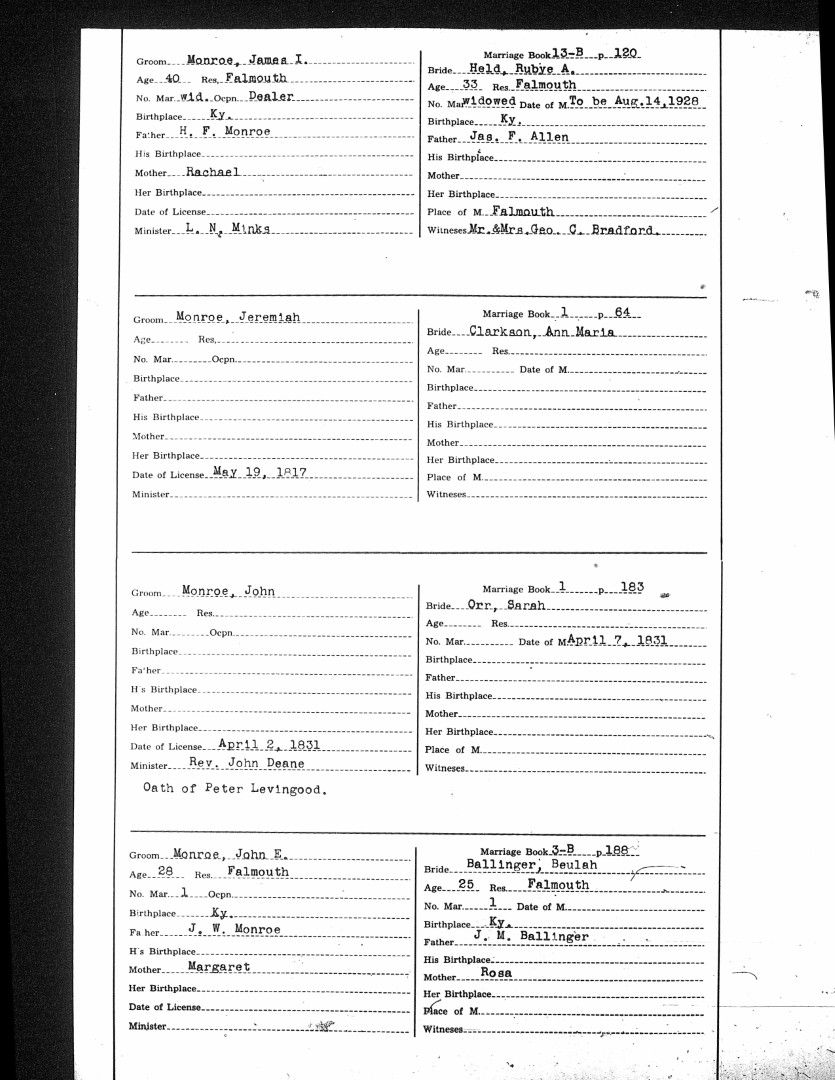 Groom Monroe, James I.
Age 40 Res. Falmouth
No. Mar. wid. Ocpn. Dealer
Birthplace Ky.
Father H. F. Monroe
His Birthplace
Mother Rachael
Her Birthplace
Date of License
Minister L. N. Minks
Marriage Book 13-B p. 120
Bride Held, Rubye A.
Age 33 Res. Falmouth
No. Mar widowed Date of M. To be Aug.14,1928
Birthplace Ky.
Father Jas. F. Allen
His Birthplace
Mother
Her Birthplace
Place of M. Falmouth
Witneses Mr.&Mrs.Geo. C. Bradford.
Groom Monroe, Jeremiah
Age Res.
No. Mar. Ocpn.
Birthplace
Father
His Birthplace
Mother
Her Birthplace
Date of License May 19, 1817
Minister
Marriage Book 1 p. 64
Bride Clarkson, Ann Maria
Age Res.
No. Mar. Date of M.
Birthplace
Father
His Birthplace
Mother
Her Birthplace
Place of M.
Witneses
Groom Monroe, John
Age Res.
No. Mar. Ocpn.
Birthplace
Fa'her
H's Birthplace
Mother
Her Birthplace
Date of License April 2, 1831
Minister Rev. John Deane
Oath of Peter Levingood.
Marriage Book 1 p. 183
Bride Orr, Sarah
Age Res.
No. Mar. Date of M. April 7, 1831
Birthplace
Father
His Birthplace
Mother
Her Birthplace
Place of M.
Witneses
Groom Monroe, John E.
Age 28 Res. Falmouth
No. Mar. 1 Ocpn.
Birthplace Ky.
Fa her J. W. Monroe
H's Birthplace
Mother Margaret
Her Birthplace
Date of License
Minister
Marriage Book 3-B p. 188
Bride Ballinger, Beulah
Age 25 Res. Falmouth
No. Mar. 1 Date of M.
Birthplace Ky.
Father J. M. Ballinger
His Birthplace
Mother Rosa
Her Birthplace
Place of M.
Witneses